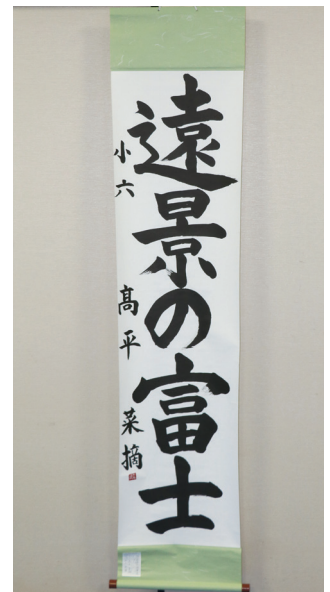 遠景の富士
小六 髙平 菜摘